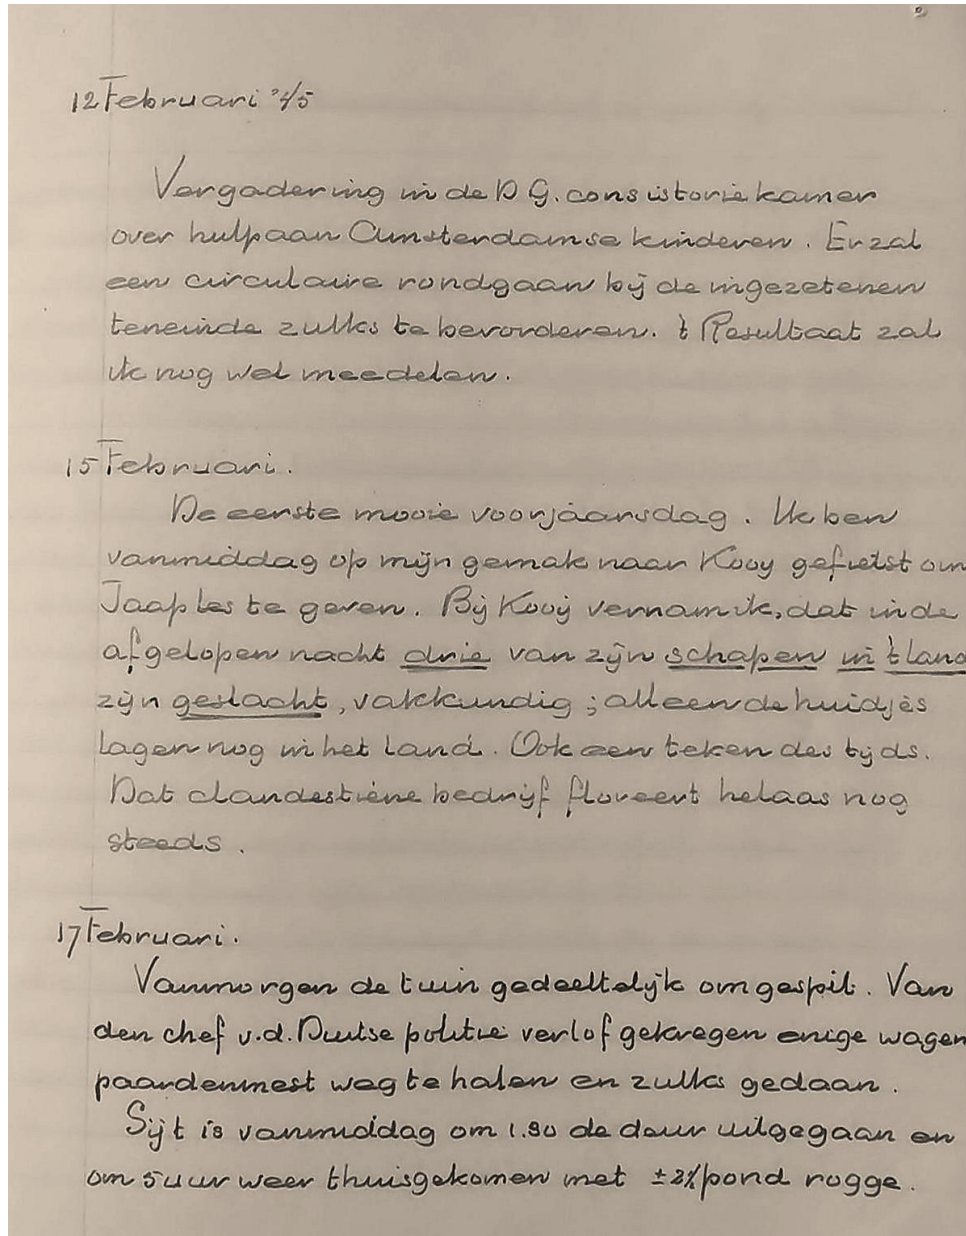 12 Februari '45
Vergadering in de D G. consistoriekamer
over hulp aan Amsterdamse kinderen. Er zal
een circulaire rondgaan bij de ingezetenen
teneinde zulks te bevorderen. 't Resultaat zal
ik nog wel meedelen.
15 Februari.
De eerste mooie voorjaarsdag. Ik ben
vanmiddag op mijn gemak naar Kooy gefietst om
Jaap les te geven. Bij Kooij vernam ik, dat in de
afgelopen nacht drie van zijn schapen in 't land
zijn geslacht, vakkundig; alleen de huidjes
lagen nog in het land. Ook een teken des tijds.
Dat clandestiene bedrijf floreert helaas nog
steeds.
17 Februari.
Vanmorgen de tuin gedeeltelijk omgespit. Van
den chef v.d. Duitse politie verlof gekregen enige wagen
paardenmest weg te halen en zulks gedaan.
Sijt is vanmiddag om 1.30 de deur uitgegaan en
om 5 uur weer thuisgekomen met ± pond rogge.